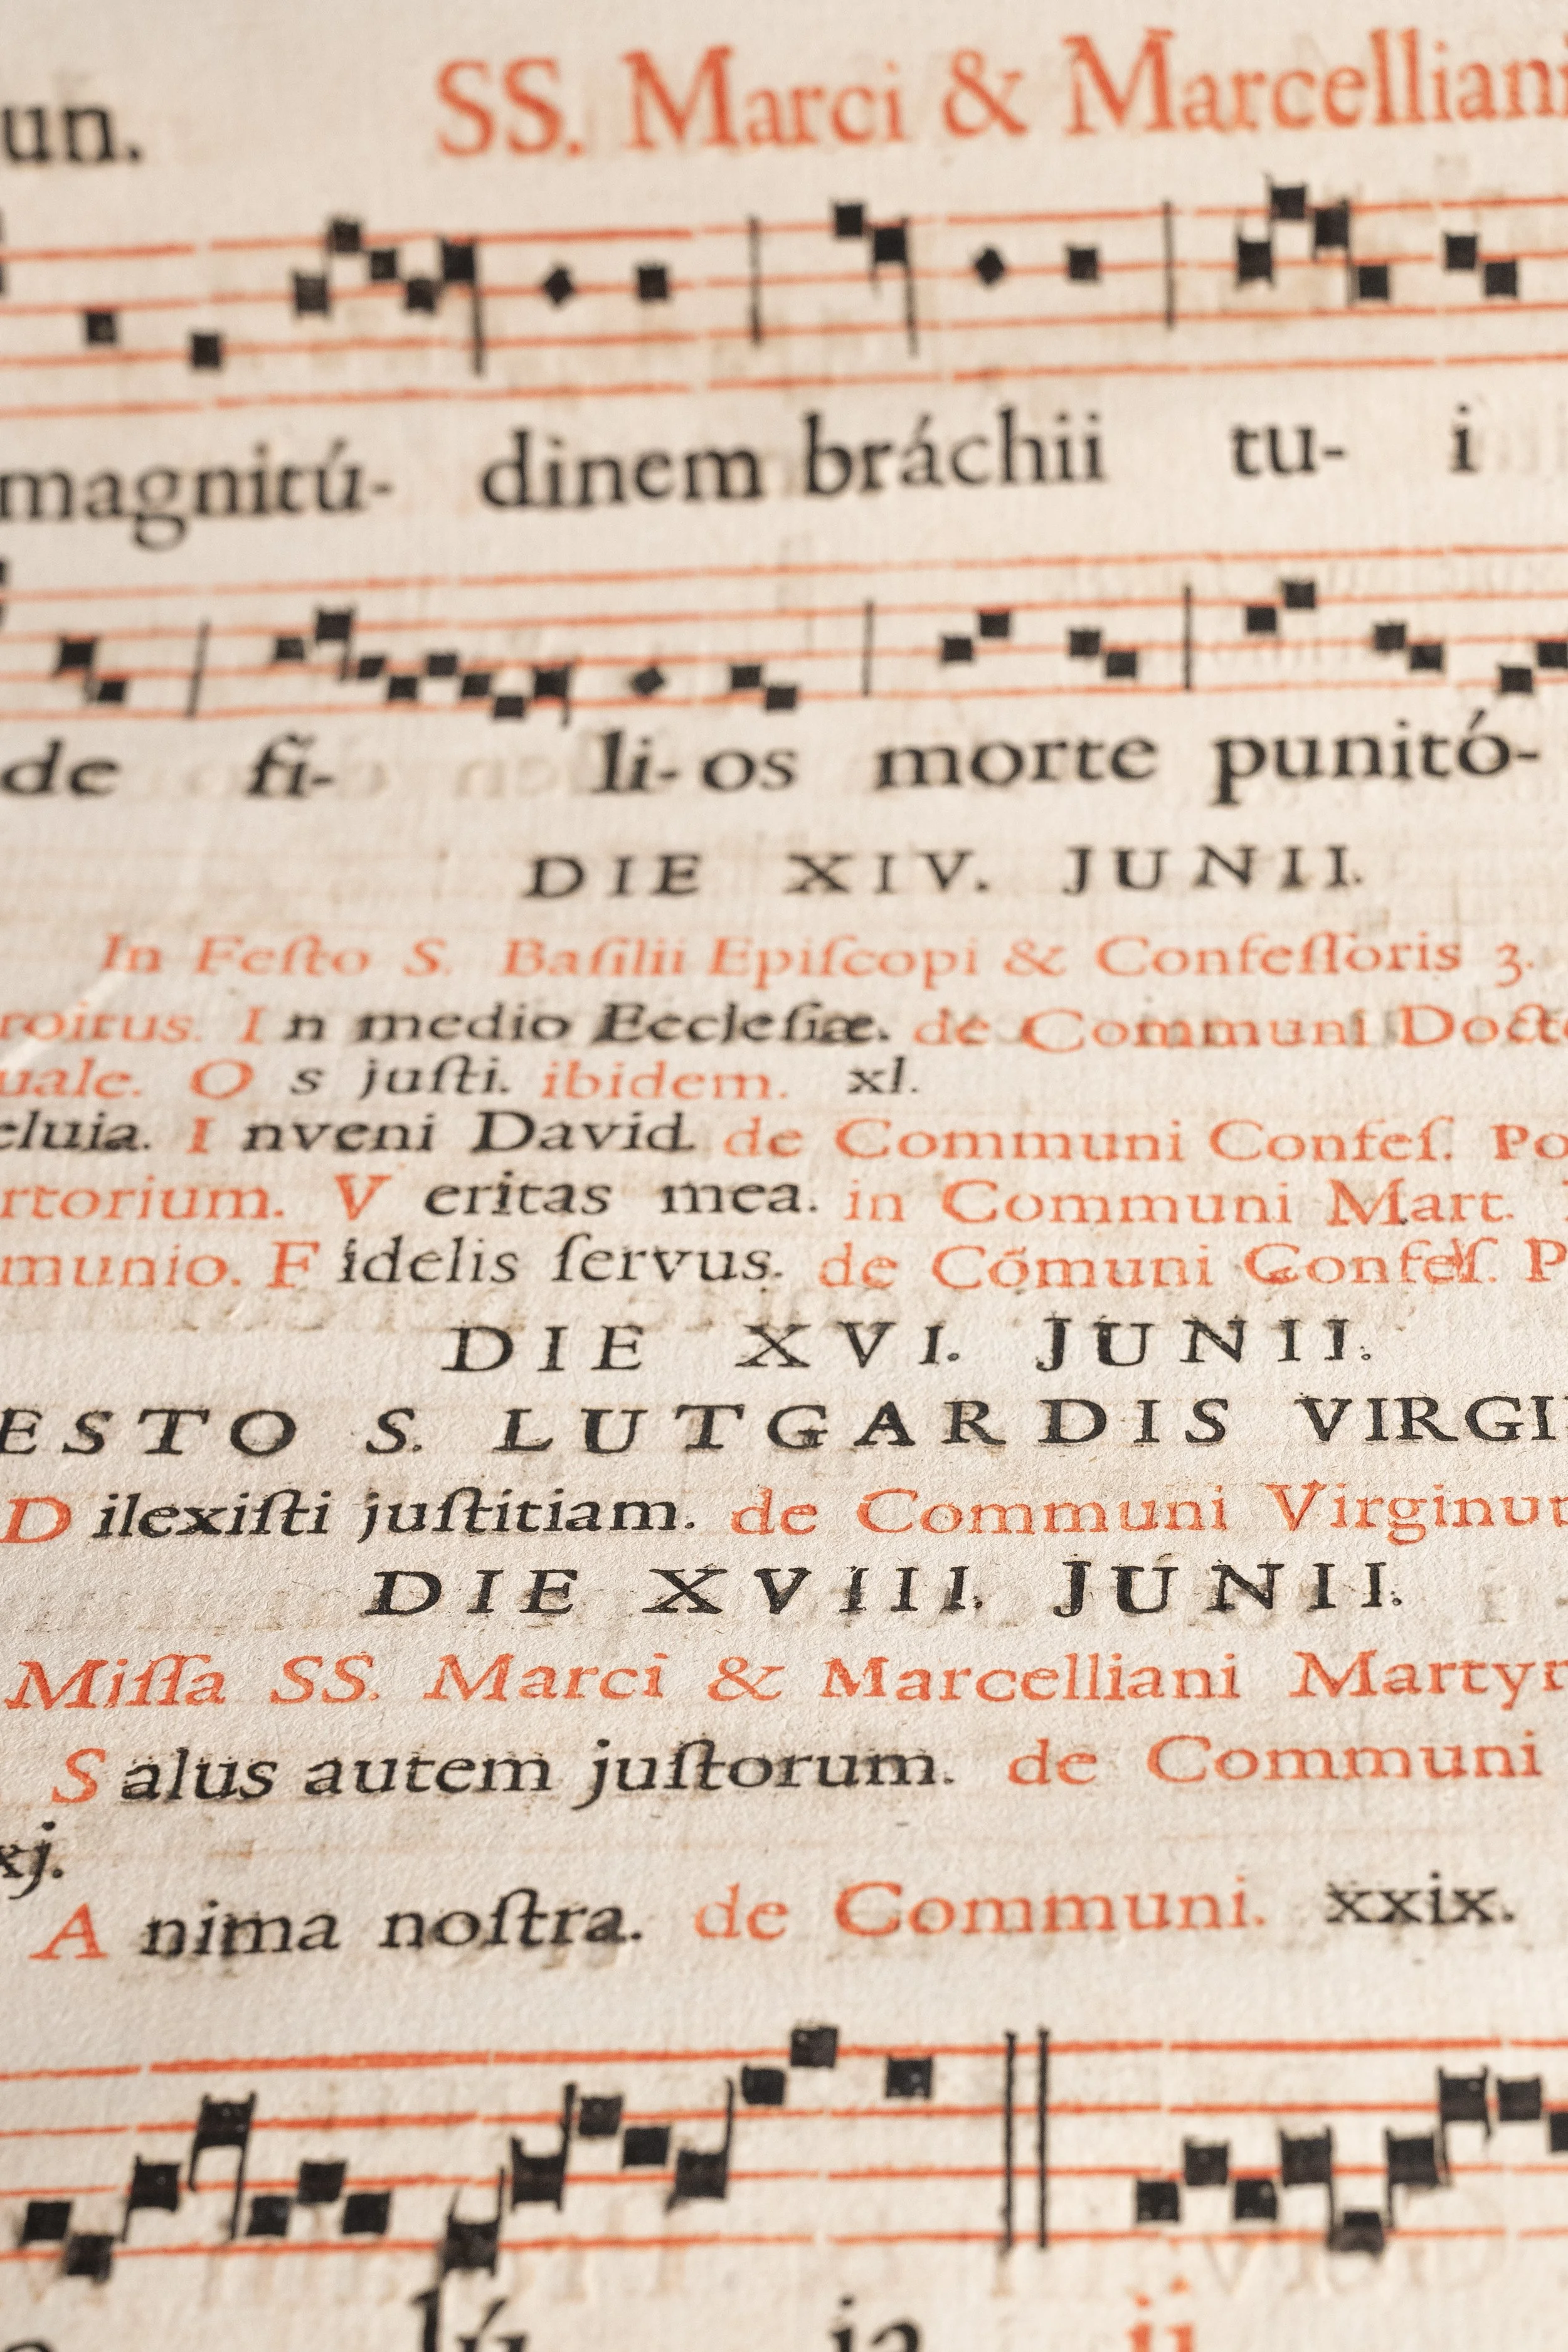 un. SS. Marci & Marcellian
magnitú- dinem bráchii tu- i
de fi- li-os morte punitó-
DIE XIV. JUNII.
In Feſto S. Baſilii Epiſcopi & Confeſſoris 3.
roitus. I n medio Eccleſiæ. de Communi Doct
uale. O s juſti. ibidem. xl.
eluia. I nveni David. de Communi Confeſ. Po
rtorium. V eritas mea. in Communi Mart.
munio. F idelis ſervus. de Cõmuni Confeſ. P
DIE XVI. JUNII.
ESTO S. LUTGARDIS VIRGI
D ilexiſti juſtitiam. de Communi Virginu
DIE XVIII. JUNII.
Miſſa SS. Marci & Marcelliani Martyr
S alus autem juſtorum. de Communi
xj.
A nima noſtra. de Communi. xxix.
lú ia ij